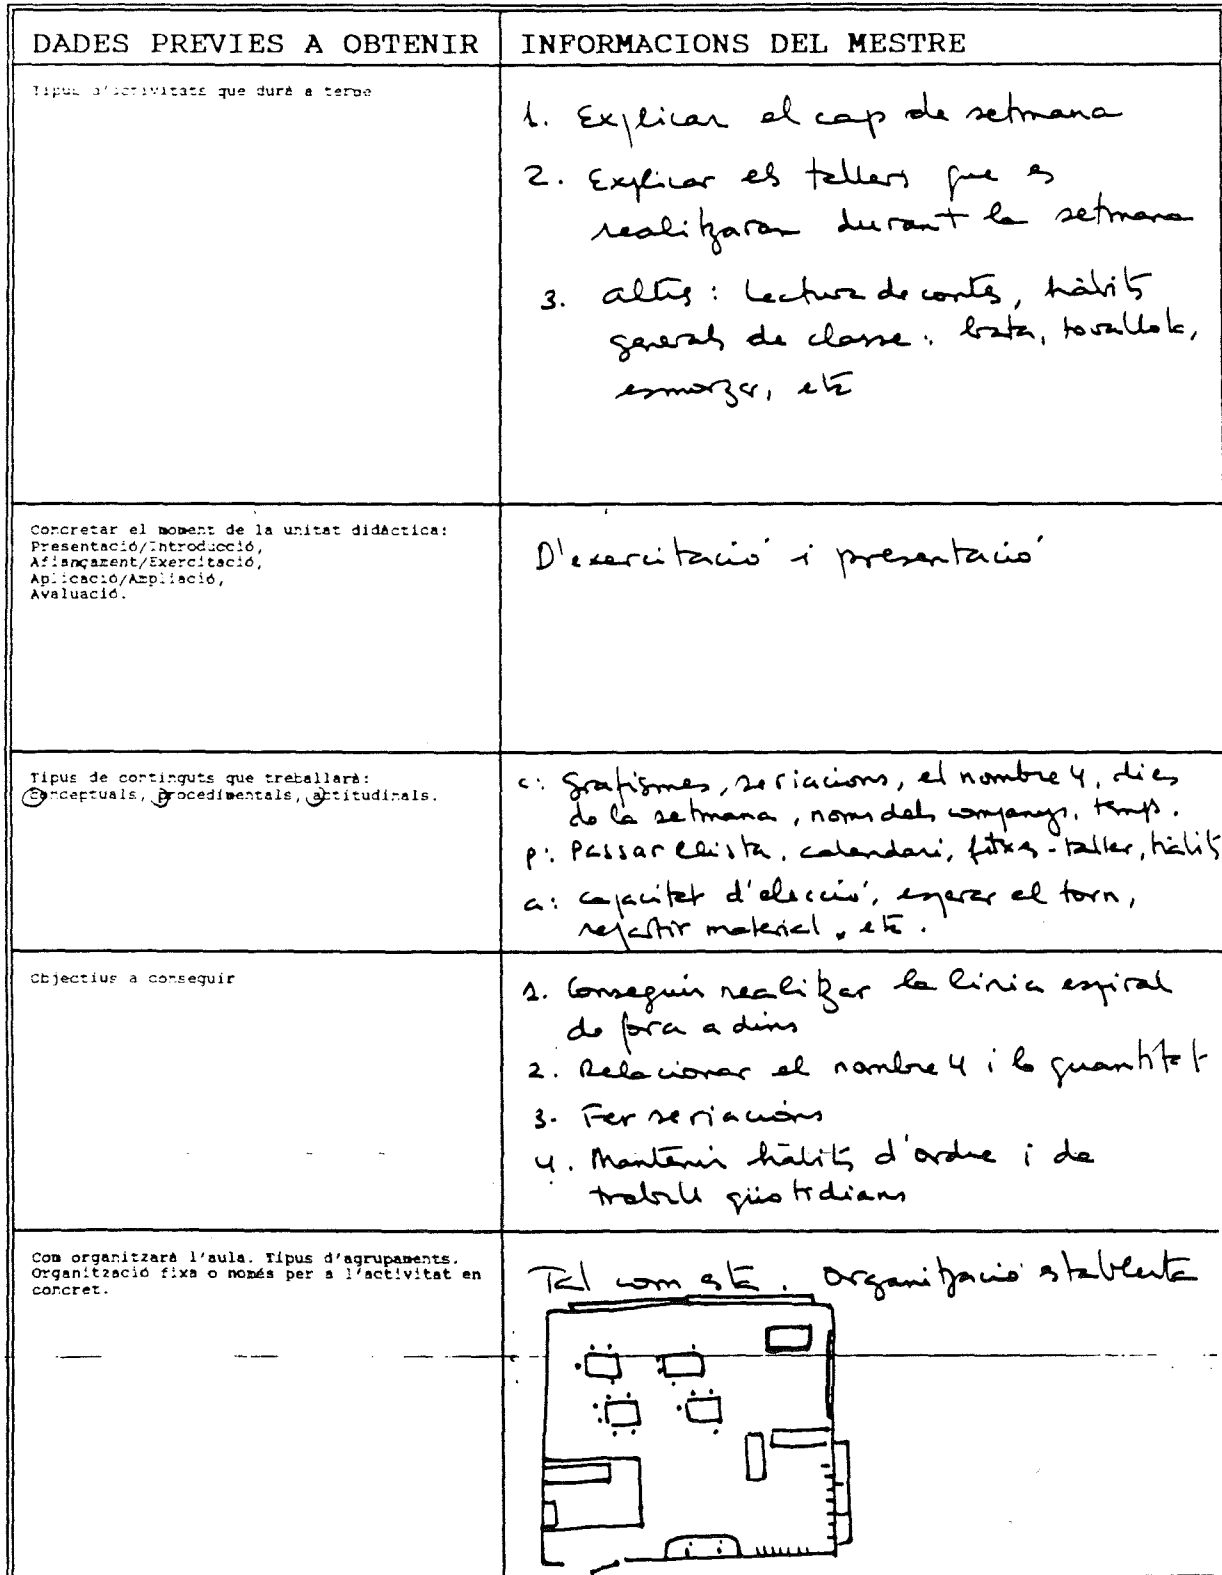 DADES PREVIES A OBTENIR
INFORMACIONS DEL MESTRE
Tipus d'activitats que durà a terme
1. Explicar el cap de setmana
2. Explicar els tallers que es
realitzaran durant la setmana
3. altres: Lectura de contes, hàbits
generals de classe: bata, tovallola,
esmorzar, etc
Concretar el moment de la unitat didàctica:
Presentació/Introducció,
Afiançament/Exercitació,
Aplicació/Ampliació,
Avaluació.
D'exercitació i presentació
Tipus de continguts que treballarà:
Conceptuals, procedimentals, actitudinals.
c: Grafismes, seriacions, el nombre 4, dies
de la setmana, noms dels companys, temps.
p: Passar llista, calendari, fitxes-taller, hàbits
a: capacitat d'elecció, esperar el torn,
repartir material, etc.
Objectius a conseguir
1. Conseguir realitzar la línia espiral
de fora a dins
2. Relacionar el nombre 4 i la quantitat
3. Fer seriacions
4. Mantenir hàbits d'ordre i de
treball quotidians
Com organitzarà l'aula. Tipus d'agrupaments.
Organització fixa o només per a l'activitat en
concret.
Tal com està. Organització establerta